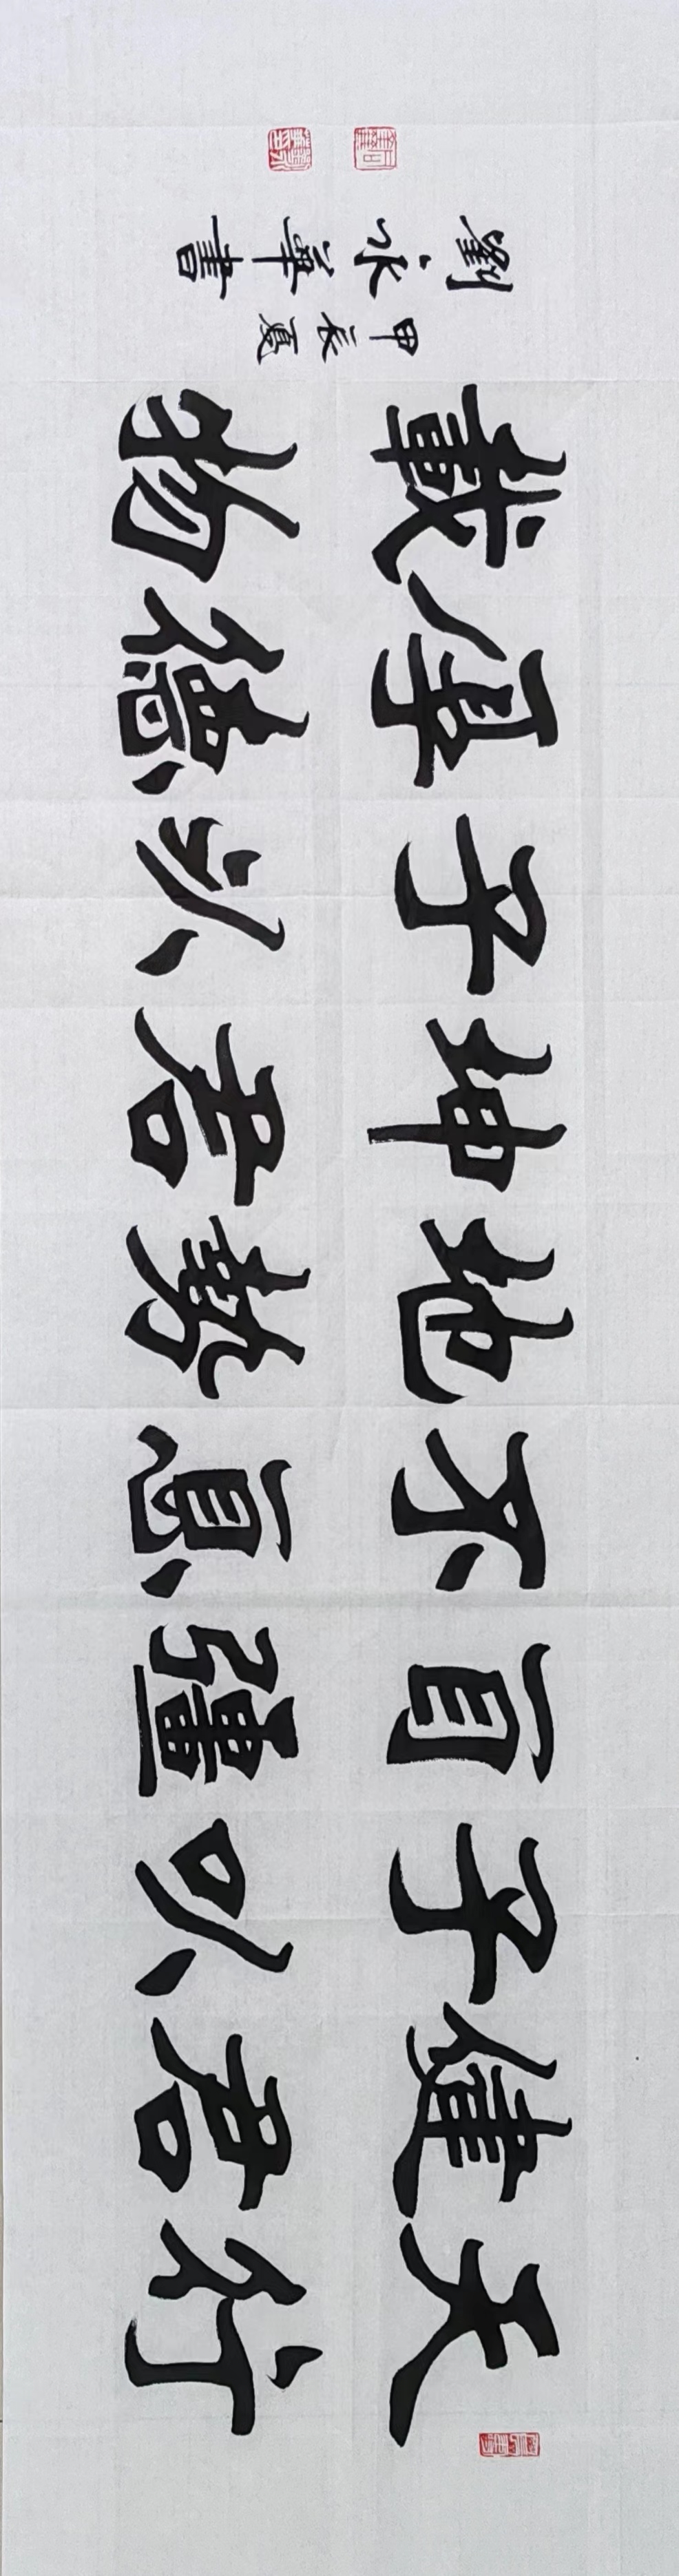 天行
健君
子以
自彊
不息
地勢
坤君
子以
厚德
載物
甲辰夏
劉永華書